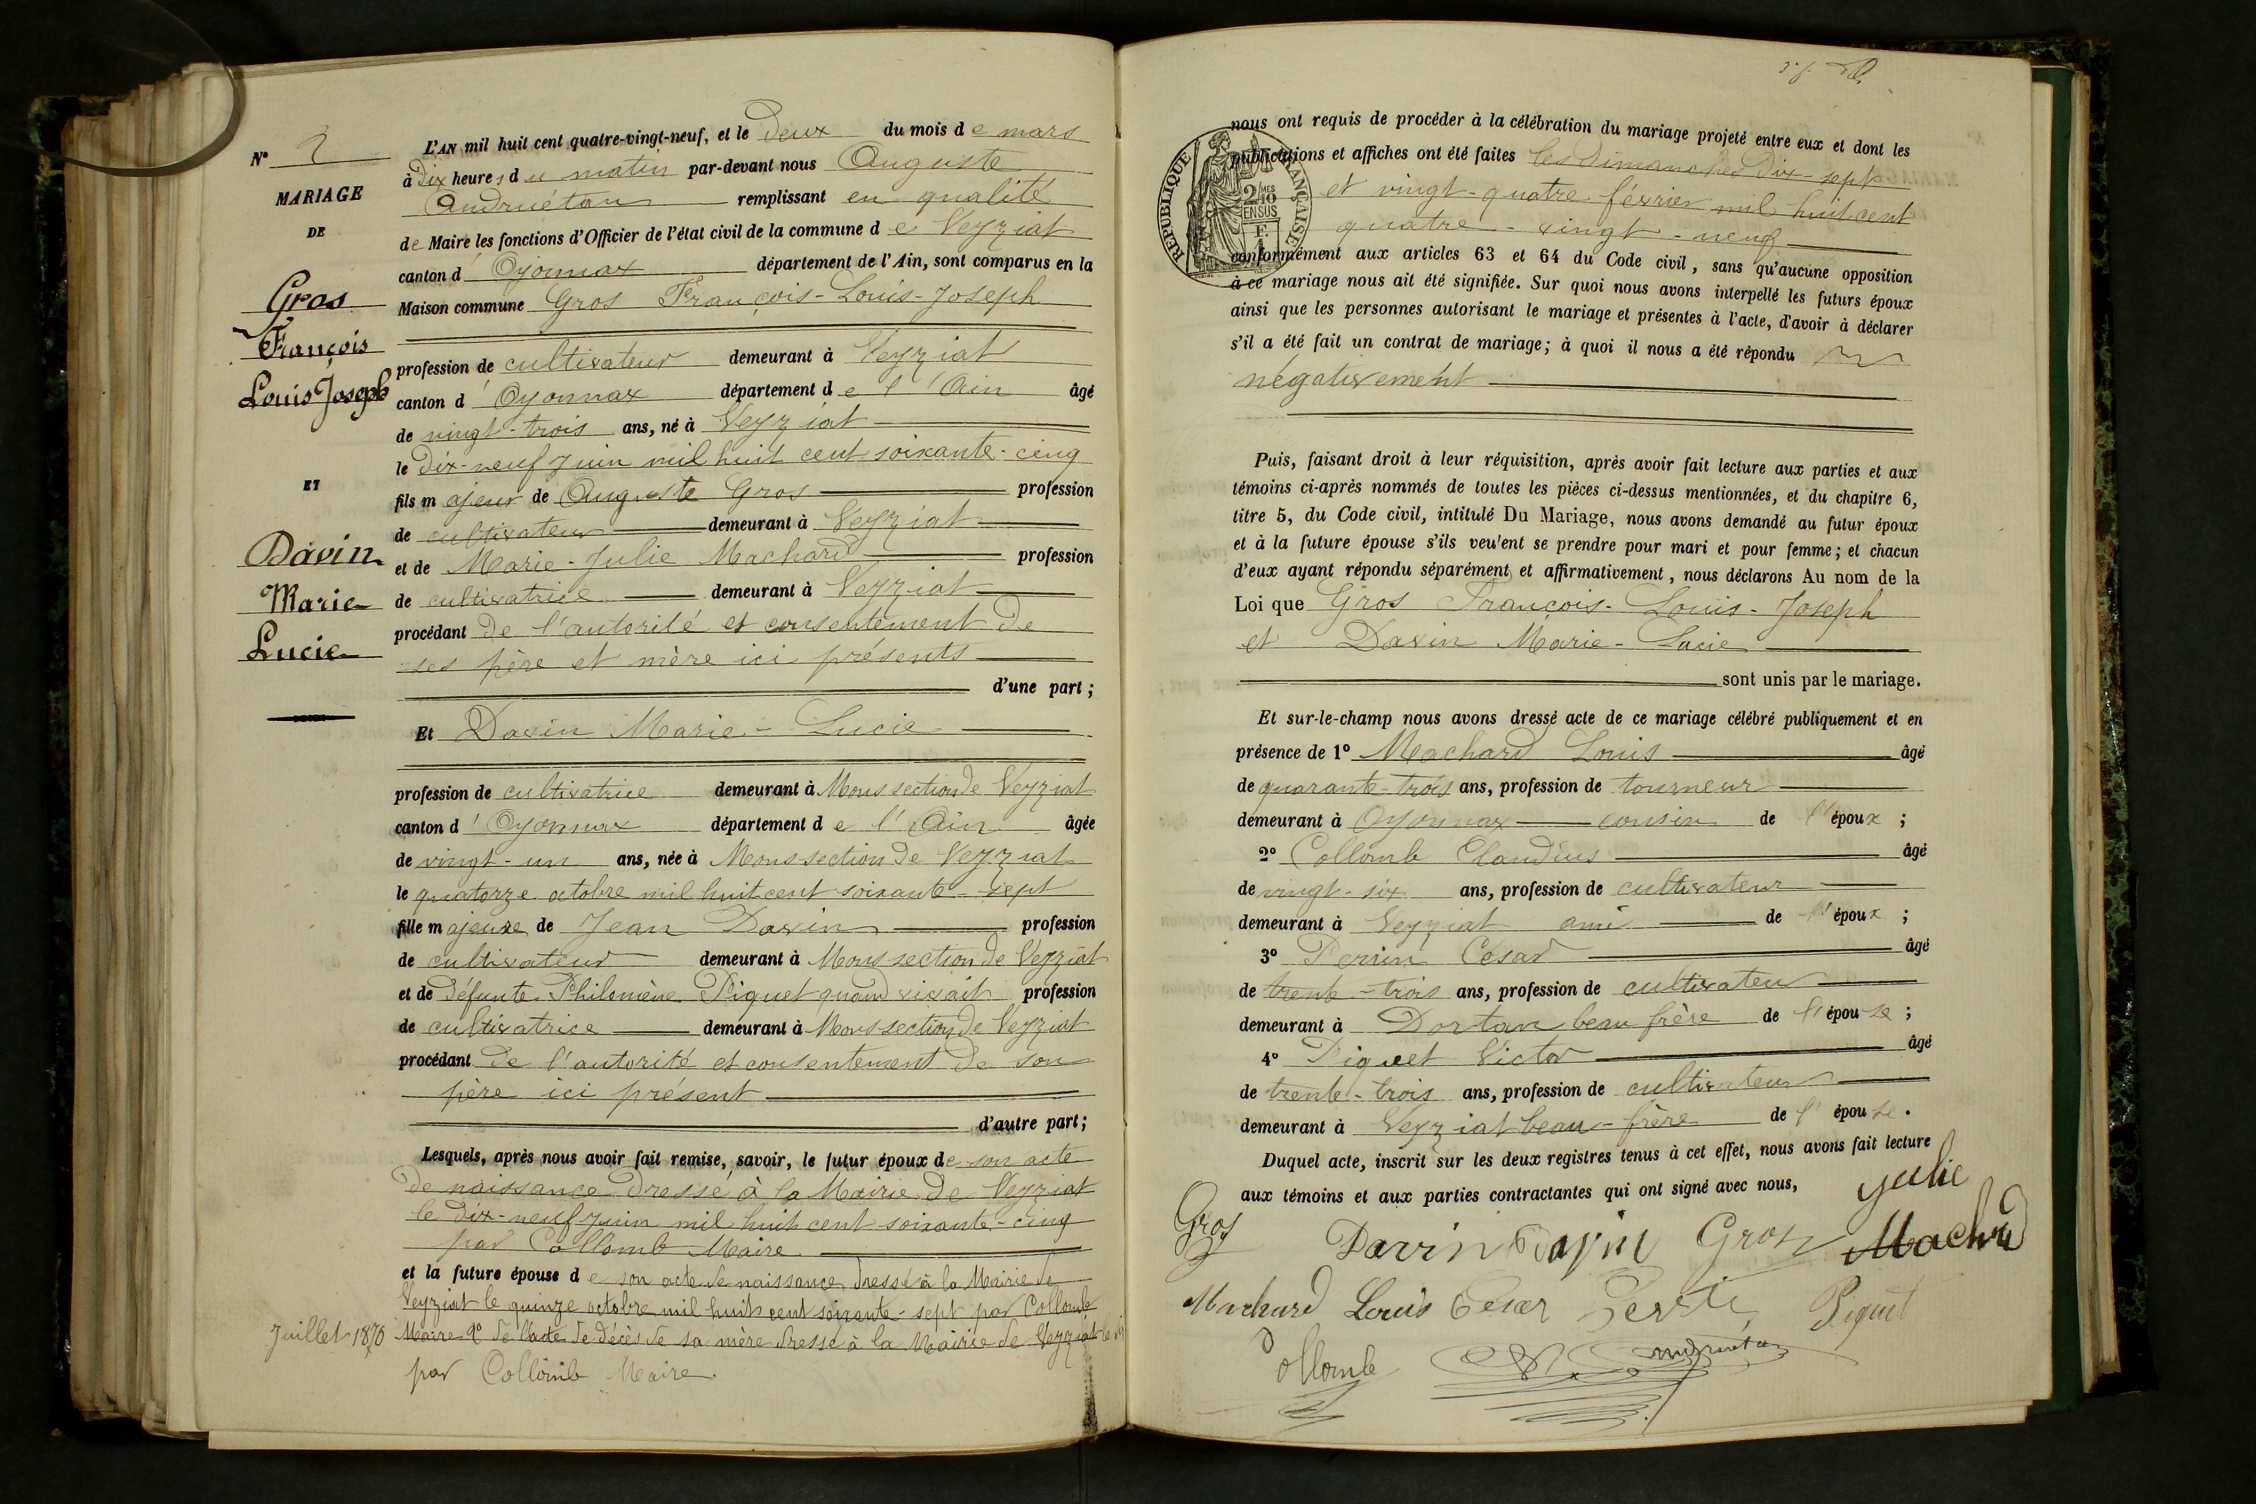 N° 2
MARIAGE
DE
Gros
François
Louis Joseph
ET
Davin
Marie
Lucie
L'AN mil huit cent quatre-vingt-neuf, et le Deux du mois de mars
à Dix heures du matin par-devant nous Auguste
Andruétan remplissant en qualité
de Maire les fonctions d'Officier de l'état civil de la commune de Veyziat
canton d'Oyonnax département de l'Ain, sont comparus en la
Maison commune Gros François-Louis-Joseph
profession de cultivateur demeurant à Veyziat
canton d'Oyonnax département de l'Ain âgé
de vingt-trois ans, né à Veyziat
le Dix-neuf Juin mil huit cent soixante-cinq
fils majeur de Auguste Gros profession
de cultivateur demeurant à Veyziat
et de Marie-Julie Machard profession
de cultivatrice demeurant à Veyziat
procédant De l'autorité et consentement De
ses père et mère ici présents
d'une part ;
Et Davin Marie-Lucie
profession de cultivatrice demeurant à Mons section De Veyziat
canton d'Oyonnax département de l'Ain âgée
de vingt-un ans, née à Mons section De Veyziat
le quatorze octobre mil huit cent soixante-sept
fille majeure de Jean Davin profession
de cultivateur demeurant à Mons section De Veyziat
et de Défunte Philomène Piquet quand vivait profession
de cultivatrice demeurant à Mons section De Veyziat
procédant De l'autorité et consentement De son
père ici présent
d'autre part ;
Lesquels, après nous avoir fait remise, savoir, le futur époux de son acte
De naissance Dressé à la Mairie De Veyziat
le Dix-neuf Juin mil huit cent soixante-cinq
par Collomb Maire
et la future épouse de son acte de naissance dressé à la Mairie de
Veyziat le quinze octobre mil huit cent soixante-sept par Collomb
Maire 2° de l'acte de décès de sa mère dressé à la Mairie de Veyziat le
Juillet 1870
par Collomb Maire.
nous ont requis de procéder à la célébration du mariage projeté entre eux et dont les
publications et affiches ont été faites les Dimanches Dix-sept
et vingt-quatre février mil huit cent
quatre-vingt-neuf
RÉPUBLIQUE FRANÇAISE
2/10
EN SUS
conformément aux articles 63 et 64 du Code civil, sans qu'aucune opposition
à ce mariage nous ait été signifiée. Sur quoi nous avons interpellé les futurs époux
ainsi que les personnes autorisant le mariage et présentes à l'acte, d'avoir à déclarer
s'il a été fait un contrat de mariage; à quoi il nous a été répondu
négativement
Puis, faisant droit à leur réquisition, après avoir fait lecture aux parties et aux
témoins ci-après nommés de toutes les pièces ci-dessus mentionnées, et du chapitre 6,
titre 5, du Code civil, intitulé Du Mariage, nous avons demandé au futur époux
et à la future épouse s'ils veulent se prendre pour mari et pour femme; et chacun
d'eux ayant répondu séparément et affirmativement, nous déclarons Au nom de la
Loi que Gros François-Louis-Joseph
et Davin Marie-Lucie
sont unis par le mariage.
Et sur-le-champ nous avons dressé acte de ce mariage célébré publiquement et en
présence de 1° Machard Louis âgé
de quarante-trois ans, profession de tourneur
demeurant à Oyonnax cousin de l'époux ;
2° Collomb Claudius âgé
de vingt-six ans, profession de cultivateur
demeurant à Veyziat ami de l'époux ;
3° Perrin César âgé
de trente-trois ans, profession de cultivateur
demeurant à Dortan beau frère de l'épouse ;
4° Piquet Victor âgé
de trente-trois ans, profession de cultivateur
demeurant à Veyziat beau-frère de l'épouse.
Duquel acte, inscrit sur les deux registres tenus à cet effet, nous avons fait lecture
aux témoins et aux parties contractantes qui ont signé avec nous,
Julie
Gros Davin Davin Gros Machard
Machard Louis César Perrin Piquet
Collomb Andruétan